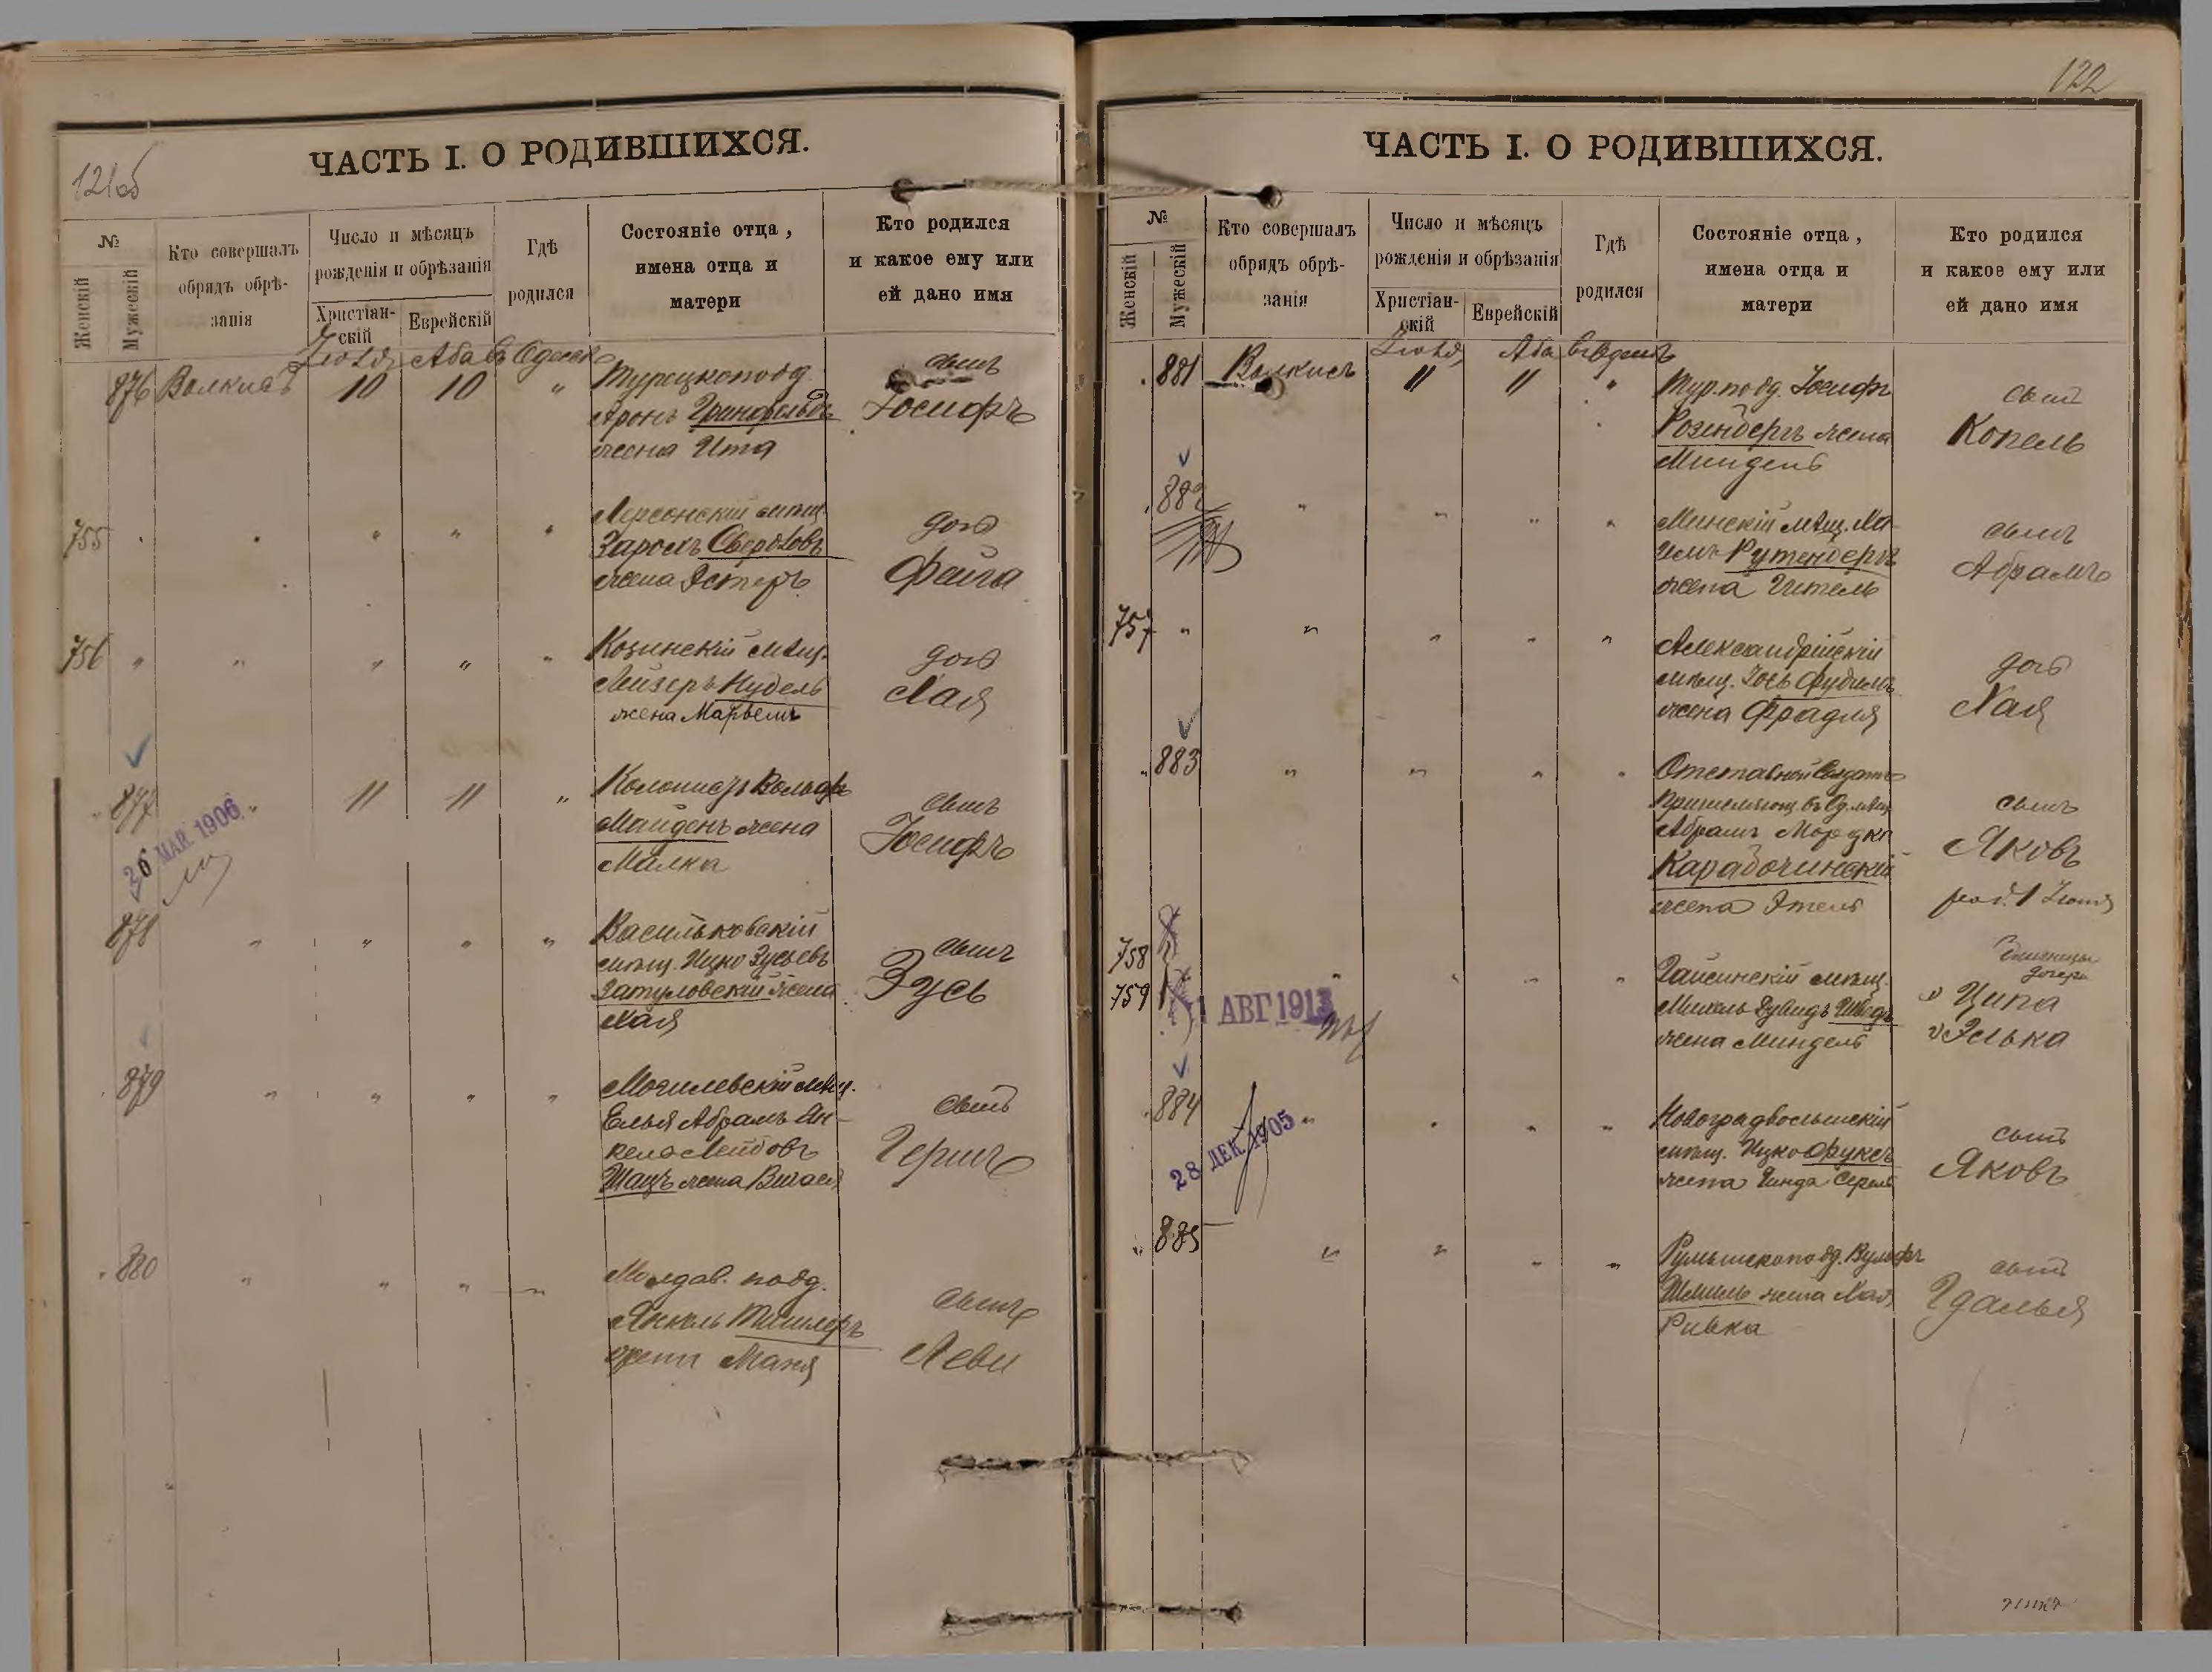 121об
ЧАСТЬ I. О РОДИВШИХСЯ.
№
Женскій
Мужескій
Кто совершалъ
обрядъ обрѣ-
занія
Число и мѣсяцъ
рожденія и обрѣзанія
Христіан-
скій
Еврейскій
Гдѣ
родился
Состояніе отца,
имена отца и
матери
Кто родился
и какое ему или
ей дано имя
Іюля Аба въ Одессѣ
876 Валкисъ 10 10 " Турецкопод
Аронъ Гринфельдъ
жена Ита
сынъ
Іосифъ
755 Херсонскій мѣщ.
Зарохъ Свердловъ
жена Эстеръ
дочь
Фейга
756 " " " " " Козинскій мѣщ.
Лейзеръ Нудель
жена Марьемъ
дочь
Хая
877 " 11 11 " Колонистъ Вольфъ
Майденъ жена
Малка
сынъ
Іосифъ
26 МАЯ 1906
878 " " " " Васильковскій
мѣщ. Ицко Зусьевъ
Затуловскій жена
Хая
сынъ
Зусь
879 " " " " Могилевскій мѣщ.
Елья Абрамъ Ян-
кель Лейбовъ
Шацъ жена
сынъ
Герш
880 " " " " Молдав. подд.
Янкель Тишлеръ
жена Маня
сынъ
Леви
122
ЧАСТЬ I. О РОДИВШИХСЯ.
№
Женскій
Мужескій
Кто совершалъ
обрядъ обрѣ-
занія
Число и мѣсяцъ
рожденія и обрѣзанія
Христіан-
скій
Еврейскій
Гдѣ
родился
Состояніе отца,
имена отца и
матери
Кто родился
и какое ему или
ей дано имя
Іюля Аба въ Одессѣ
881 Валкисъ 11 11 " Тур. подд. Іосифъ
Розенбергъ жена
Миндель
сынъ
Копель
882 " " " " Минскій мѣщ. Ха-
имъ Рутенбергъ
жена Гитель
сынъ
Абрамъ
757 " " " " " Александрійскій
мѣщ. Іосъ Фудимъ
жена Фрадля
дочь
Хая
883 " " " " Отставной Солдатъ
Абрамъ Мордко
Карабочинскій
жена Этель
сынъ
Яковъ
род. 1 Іюля
758
759 " " " " Гайсинскій мѣщ.
Михель Дувидъ Шведъ
жена Миндель
Близницы
дочери
1) Ципа
2) Элька
1 АВГ 1913
884 " " " " Новоградволынскій
мѣщ. Ицко Фуксъ
жена Гинда Сереля
сынъ
Яковъ
28 ДЕК 1905
885 " " " " Румынскоподд. Вульфъ
Шмиль жена Хая
Ривка
сынъ
Гдалья